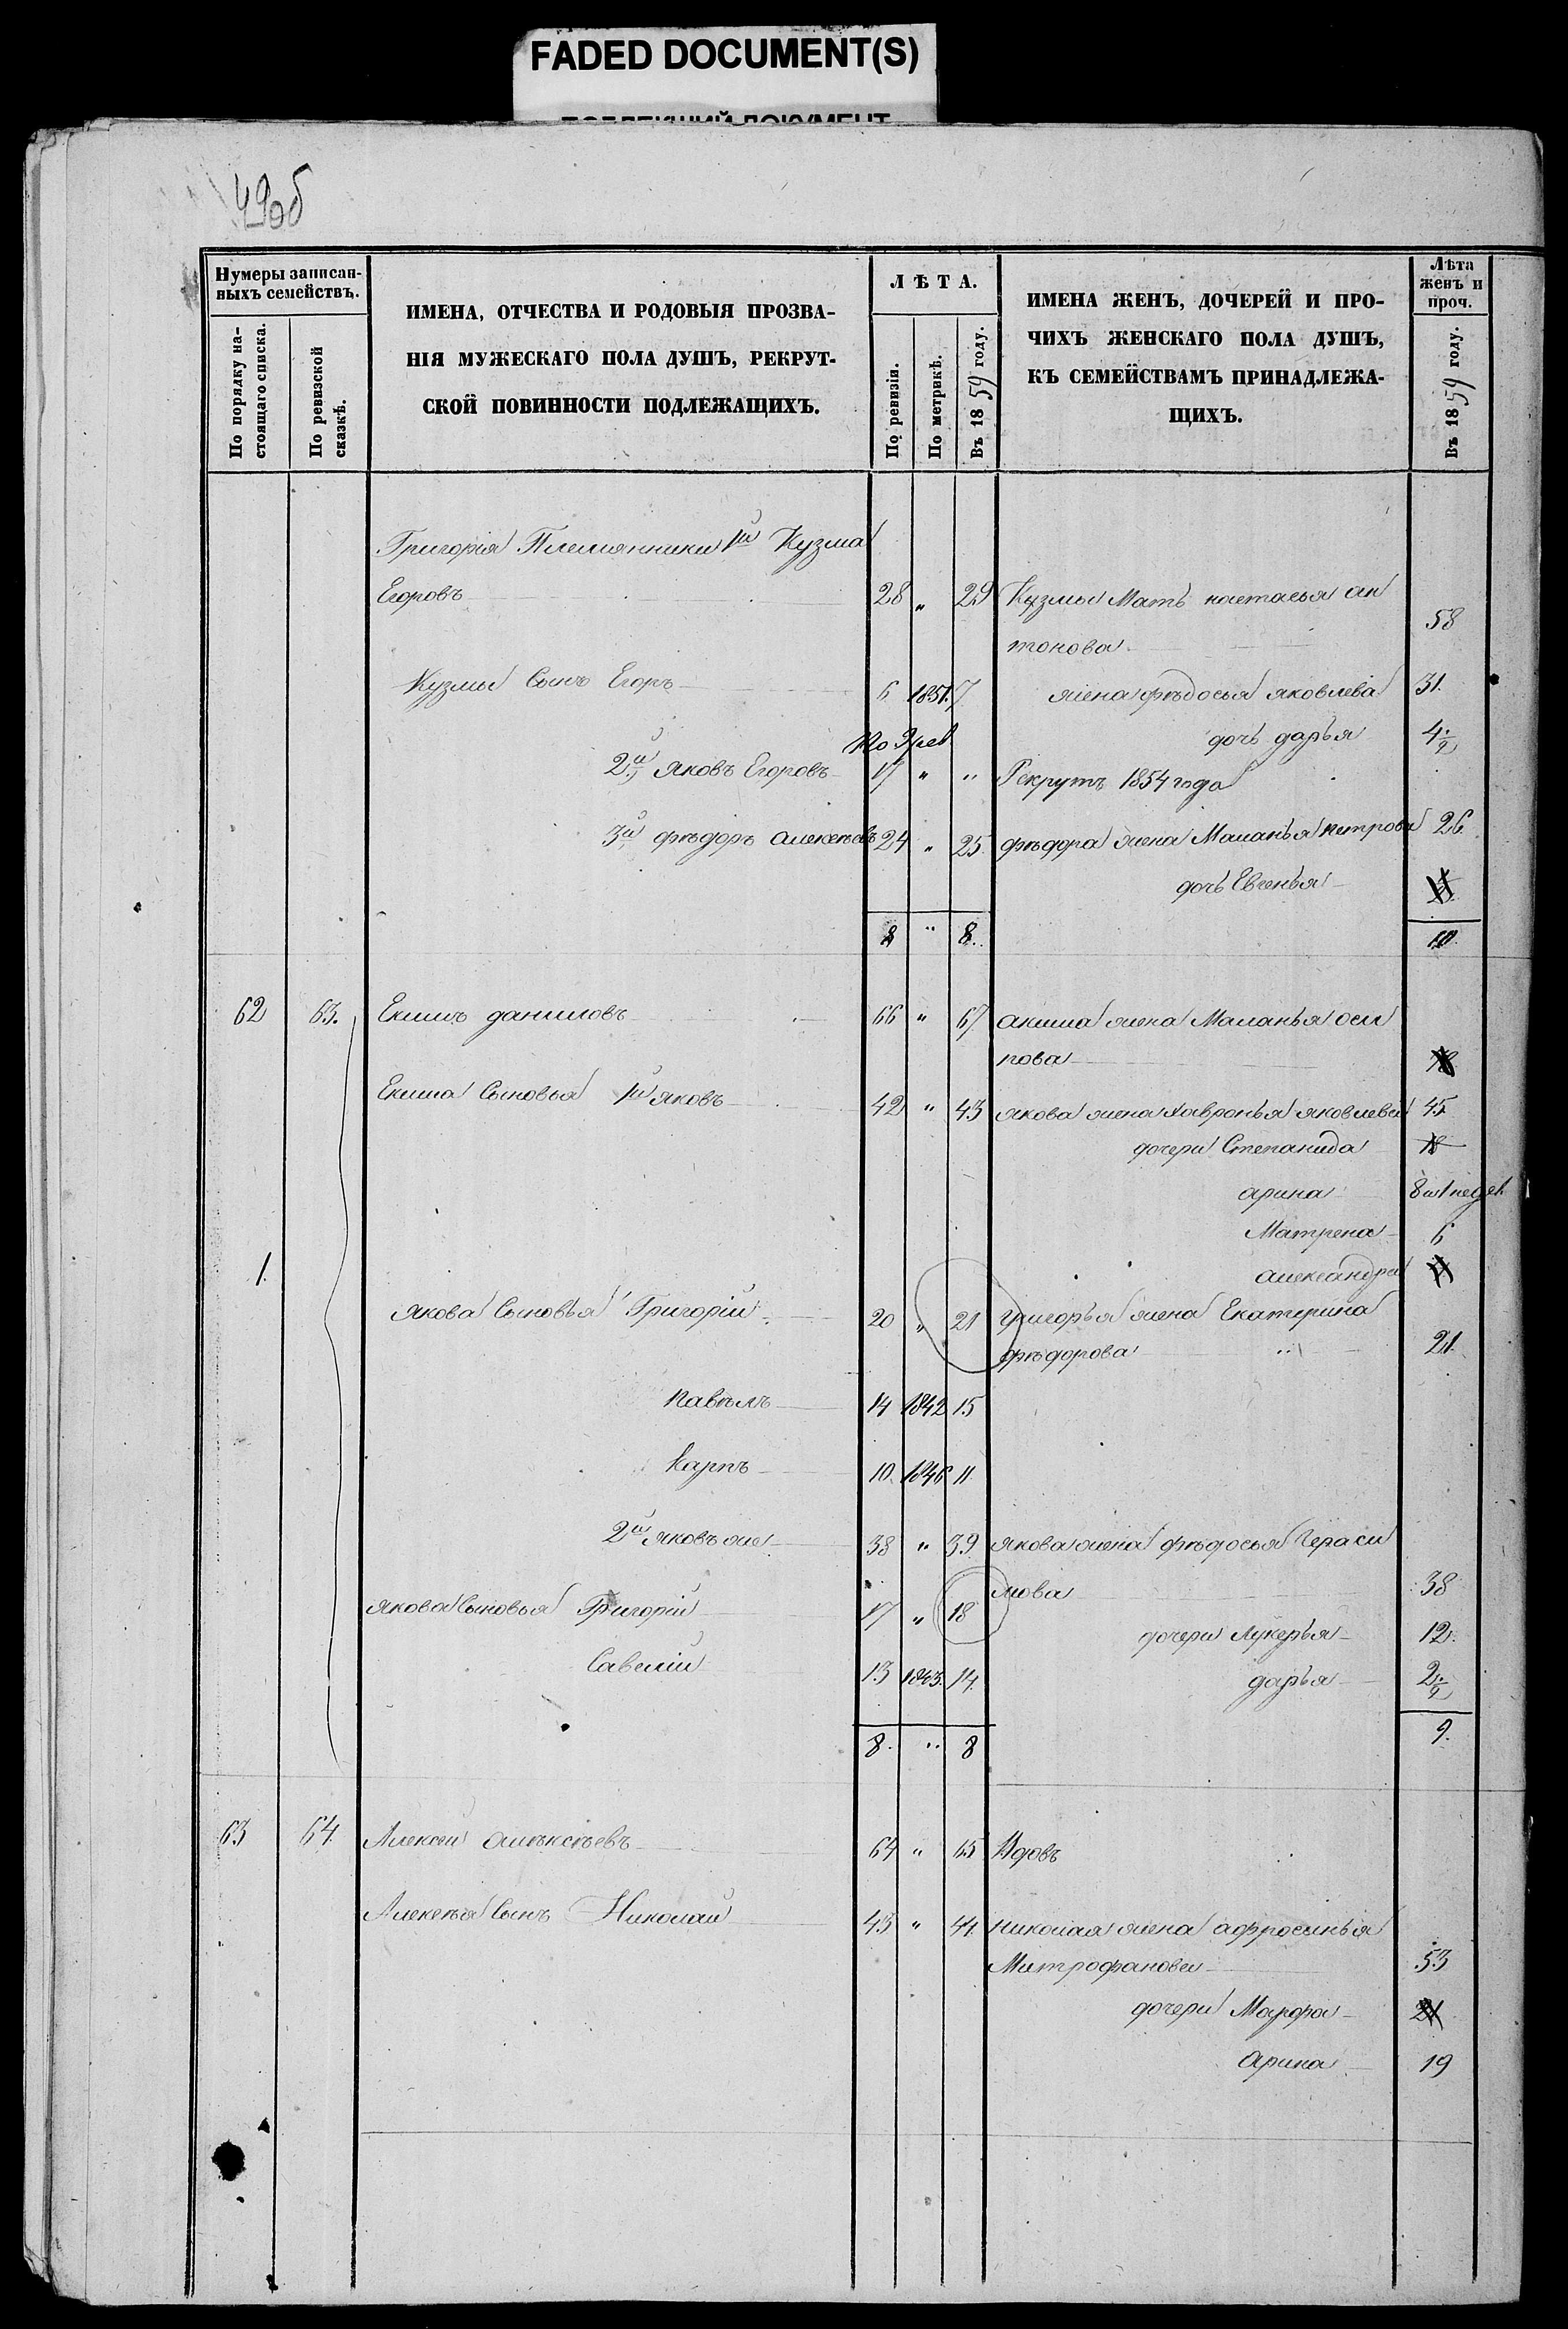 FADED DOCUMENT(S)
49об
Нумеры записан-
ныхъ семействъ.
По порядку на-
стоящаго списка.
По ревизской
сказкѣ.
ИМЕНА, ОТЧЕСТВА И РОДОВЫЯ ПРОЗВА-
НІЯ МУЖЕСКАГО ПОЛА ДУШЪ, РЕКРУТ-
СКОЙ ПОВИННОСТИ ПОДЛЕЖАЩИХЪ.
ЛѢТА.
По ревизіи.
По метрикѣ.
Въ 1859 году.
ИМЕНА ЖЕНЪ, ДОЧЕРЕЙ И ПРО-
ЧИХЪ ЖЕНСКАГО ПОЛА ДУШЪ,
КЪ СЕМЕЙСТВАМЪ ПРИНАДЛЕЖА-
ЩИХЪ.
Лѣта
женъ и
проч.
Въ 1859 году.
Григорія Племянники 1й Кузма
Егоровъ 28 „ 29 Кузмы Мать настасья ан
тонова 58
Кузмы Сынъ Егоръ 6 1851. 7 жена фѣдосья яковлева 31.
По 9 рев дочь дарья 4 1/2
2й Яковъ Егоровъ 17 „ „ Рекрутъ 1854 года
3й фѣдоръ алексѣевъ 24 „ 25 фѣдора жена Маланья петрова 26
дочь Евгенья
8 „ 8. 10.
62 63. Екимъ даниловъ 66 „ 67 акима жена Маланья оси
пова
Екима Сыновья 1й яковъ 42 „ 43 якова жена хавронья яковлева 45
дочери Степанида 18
арина 8
Матрена 6
1. александра
якова Сыновья Григорій 20 „ 21 григорья жена Екатерина
фѣдорова 21.
павѣлъ 14 1842 15
Карпъ 10. 1846 11.
2й яковъ же 38 „ 39 якова жена фѣдосья Гераси
мова 38
якова Сыновья Григорій 17 „ 18
дочери Лукерья 12.
Савелій 13 1843. 14. дарья 2 1/2
8. „ 8 9.
63 64. Алексѣй алѣксѣевъ 64 „ 65 Вдовъ
Алексѣя Сынъ Николай 43 „ 44. николая жена афросинья
Митрофанова 53
дочери Марфа 21
Арина 19